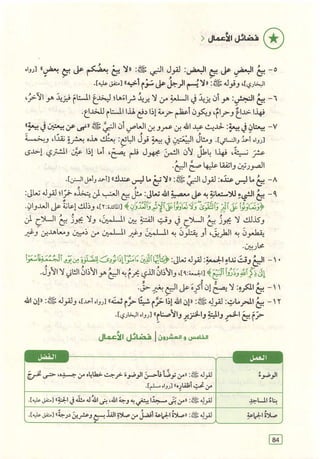 فضائل الأعمال
٥- بيع البعض على بيع البعض: لقول النبي ﷺ: «لا يبع بعضكم على بيع بعض» [رواه
البخاري]، وقوله ﷺ: «لا يسم الرجل على سوم أخيه» [متفق عليه].
٦- بيع النجش: هو أن يزيد في السلعة من لا يريد شراءها؛ ليخدع المستام فيزيد هو الآخر،
فهذا خداع وحرام، ويكون أعظم حرمة إذا دفع هذا المستام للخداع.
٧- بيعتان في بيعة: لحديث عبد الله بن عمرو بن العاص أن النبي ﷺ «نهى عن بيعتين في بيعة»
[رواه أحمد والنسائي]. ومثال البيعتين في بيعة قول البائع: بعتك هذه بعشرة نقدا، وبخمسة
عشر نسيئة، فهذا باطل لأن الثمن مجهول فلم يصح، أما إذا عين المشتري إحدى
الصورتين واتفقا عليها صح البيع.
٨- بيع ما ليس عنده: لقول النبي ﷺ: «لا تبع ما ليس عندك» [أحمد وأهل السنن].
٩- بيع الشيء للاستعانة به على معصية الله تعالى: مثل بيع العنب لمن يتخذه خمرا؛ لقوله تعالى:
﴿وتعاونوا على البر والتقوى ولا تعاونوا على الإثم والعدوان﴾ [المائدة:٢]، وذلك إعانة على العدوان.
وكذلك لا يجوز بيع السلاح في وقت الفتنة بين المسلمين، ولا يجوز بيع السلاح لمن
يقطعون به الطريق، أو يقتلون به المسلمين وغير المسلمين من ذميين ومعاهدين وغير
محاربين.
١٠- البيع وقت نداء الجمعة: لقوله تعالى: ﴿يا أيها الذين آمنوا إذا نودي للصلاة من يوم الجمعة فاسعوا
إلى ذكر الله وذروا البيع﴾ [الجمعة:٩]، والأذان الذي يحرم به البيع هو الأذان الثاني لا الأول.
١١- بيع المكره: لا يصح إن أكره على البيع بغير حق.
١٢- بيع المحرمات: لقوله ﷺ: «إن الله إذا حرم شيئا حرم ثمنه» [رواه أحمد]، ولقوله ﷺ: «إن الله
حرم بيع الخمر والميتة والخنزير والأصنام» [رواه البخاري].
الخامس والعشرون | فضائل الأعمال
العمل الفضل
الوضوء لقوله ﷺ: «من توضأ فأحسن الوضوء خرجت خطاياه من جسده، حتى تخرج
من تحت أظفاره» [رواه مسلم].
بناء المساجد لقوله ﷺ: «من بنى مسجدا يبتغي به وجه الله، بنى الله له مثله في الجنة» [متفق عليه].
صلاة الجماعة لقوله ﷺ: «صلاة الجماعة أفضل من صلاة الفذ بسبع وعشرين درجة» [متفق عليه].
84